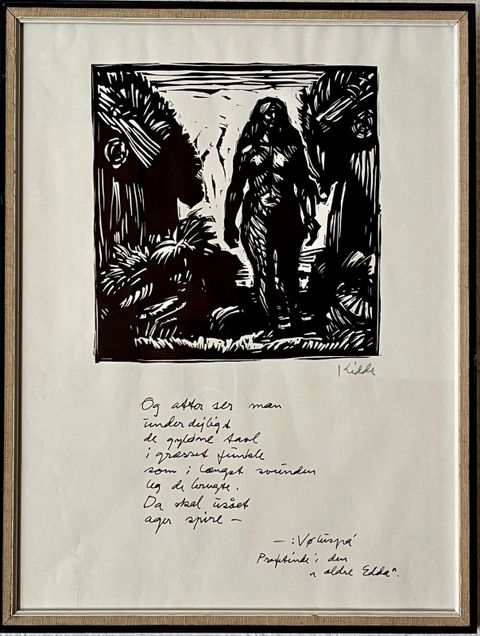 Kidde
Og atter ser man
underdejligt
de gyldne tavl
i græsset funkle
som i længst svunden
leg de brugte.
Da skal usået
ager spire –
– : Vøluspá
Profetinde i den
"ældre Edda".